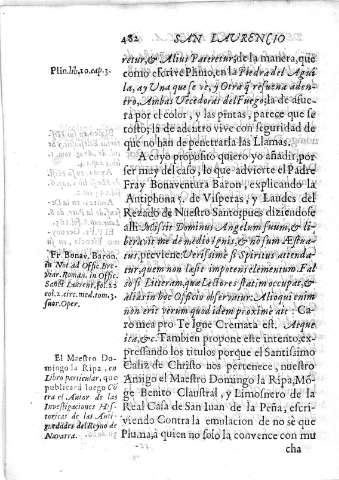 482 SAN LAURENCIO
retur, & Alius Pateretur; de la manera, que
como escrive Plinio, en la Piedra del Agui
la, ay Una que se vè, y Otra q̃ resuena aden-
tro, Ambas Vecedoras del Fuego; la de afue-
rà por el color, y las pintas, parece que se
tostò; la de adentro vive con seguridad de
que no han de penetrarla las Llamas.
A cuyo proposito quiero yo añadir, por
ser muy del caso, lo que advierte el Padre
Fray Bonaventura Baron, explicando la
Antiphona 5. de Visperas, y Laudes del
Rezado de Nuestro Santo; pues diziendose
alli: Misit Dominus Angelum suum, & li-
beravit me de medio Ignis, & no sum Æstua-
tus, previene: Verissimè si Spiritus attenda-
tur, quem non læsit impotens elementum. Fal
sò si Litteram, quæ Lectores statim occupat, &
aliàs in hoc Officio observatur. Alioqui enim
non erit verum quod idem proximè ait:
Caro mea pro Te Igne Cremata est. Atque
ita, &c. Tambien propone este intento, ex-
pressando los titulos porque el Santissimo
Caliz de Christo nos pertenece, nuestro
Amigo el Maestro Domingo la Ripa, Mõ-
ge Benito Claustral, y Limosnero de la
Real Casa de San Iuan de la Peña, escri-
viendo Contra la emulacion de no sè que
Pluma, à quien no solo la convence con mu
cha
Plin. lib. 10. cap. 3.
Fr. Bonav. Baron.
in Not. ad Offic. Bre-
viar. Roman. in Offic.
Sanct. Laurent. fol. 22
col. 2. circ. med. tom. 3.
suar. Oper.
El Maestro Do-
mingo la Ripa, en
Libro particular, que
publicarà luego Cõ
tra el Autor de las
Investigaciones His-
toricas de las Anti-
guedades del Reyno de
Navarra.